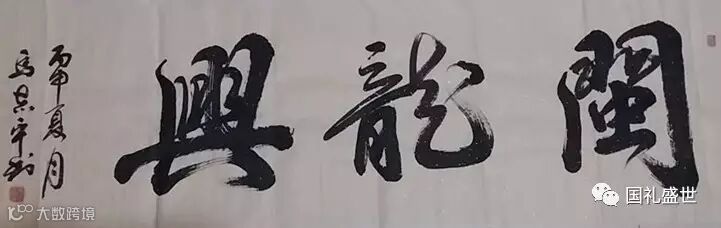 閩龍興
丙申夏月
国礼盛世
大数跨境